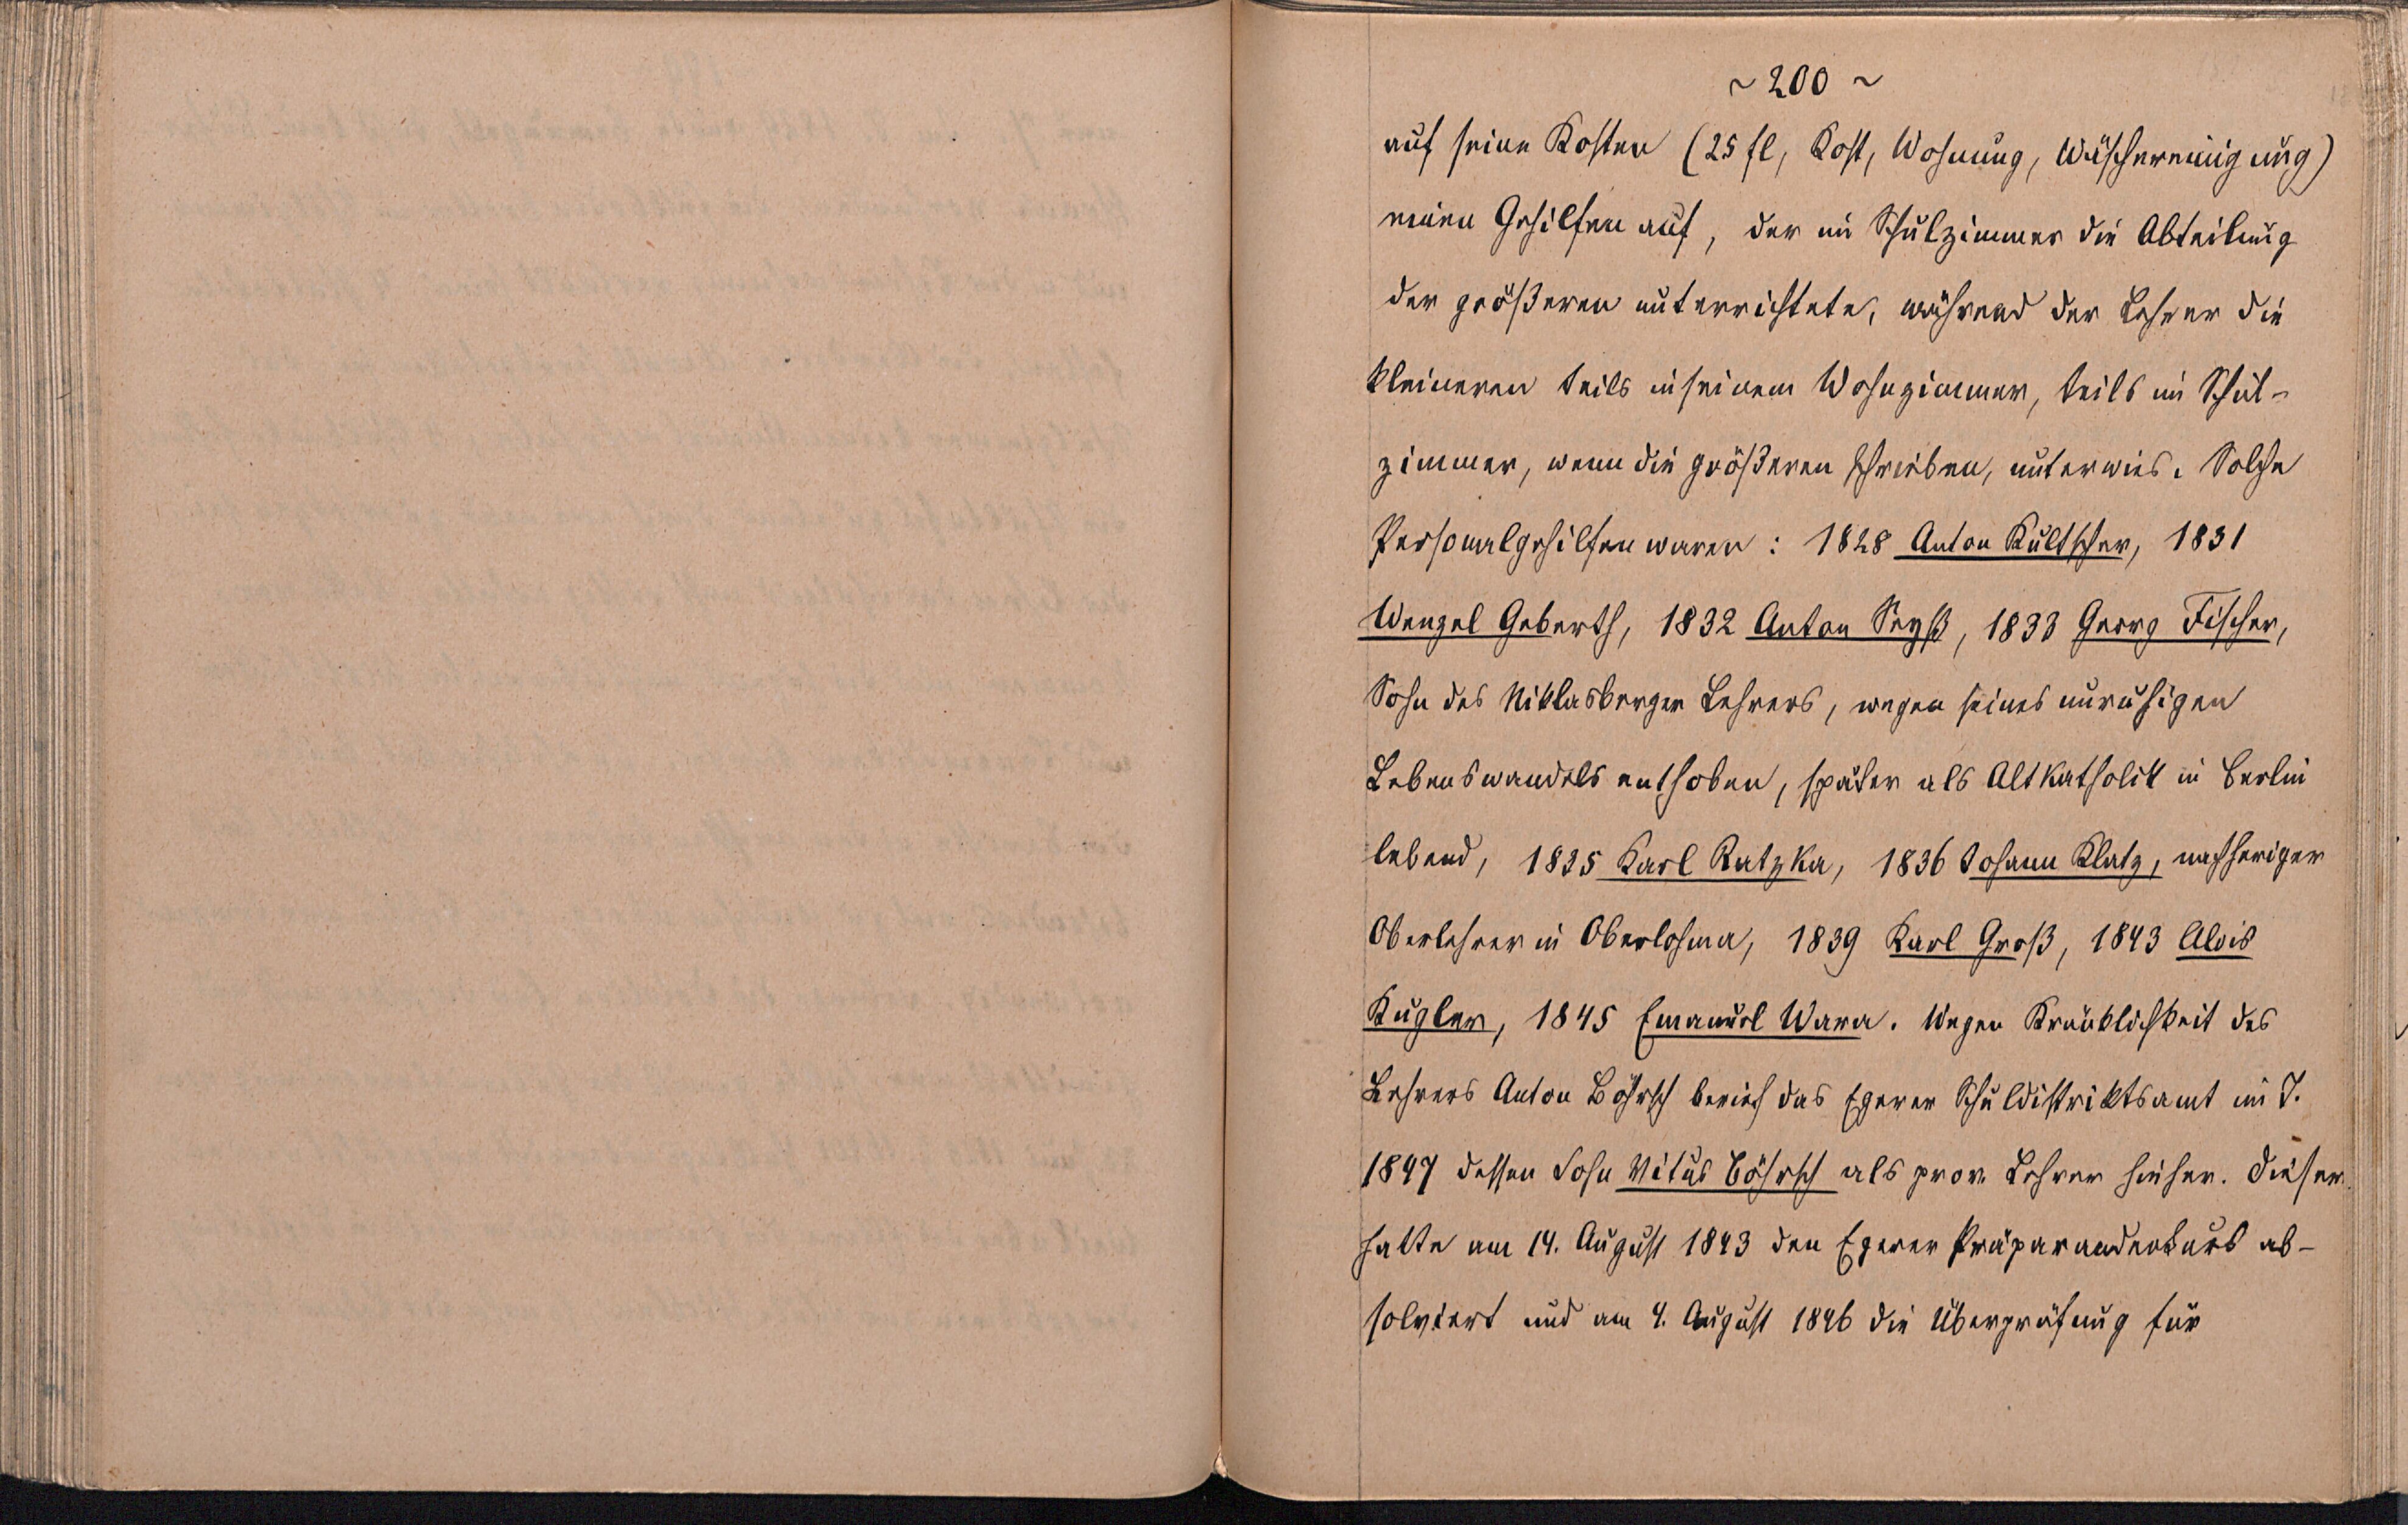 ~ 200 ~
auf seine Kosten (25 fl, Kost, Wohnung, Wäschereinigung)
einen Gehilfen auf, der im Schulzimmer die Abteilung
der größeren unterrichtete, während der Lehrer die
kleineren teils in seinem Wohnzimmer, teils im Schul-
zimmer, wenn die größeren schrieben, unterwies. Solche
Personalgehilfen waren: 1828 Anton Kultscher, 1831
Wenzel Geberth, 1832 Anton Seyß, 1833 Georg Fischer,
Sohn des Niklasberger Lehrers, wegen seines unruhigen
Lebenswandels enthoben, später als Altkatholik in Berlin
lebend, 1835 Karl Ratzka, 1836 Johann Klatz, nachheriger
Oberlehrer in Oberlohma, 1839 Karl Groß, 1843 Alois
Kugler, 1845 Emanuel Wara. Wegen Kränklichkeit des
Lehrers Anton Böhrsch berief das Egerer Schuldistriktsamt im J.
1847 dessen Sohn Vitus Böhrsch als prov. Lehrer hieher. Dieser
hatte am 14. August 1843 den Egerer Präparandenkurs ab-
solviert und am 4. August 1846 die Überprüfung für